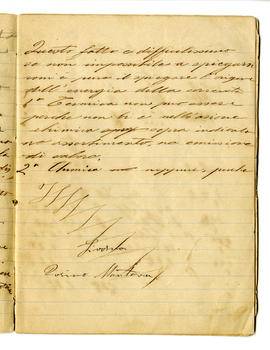 Questo fatto è difficilissimo
se non impossibile a spiegarsi
com'è pure il spiegare l'origine
dell'energia della corrente
1ª Termica non può essere
perchè non vi è nell'azione
chimica sopra indicata
no assorbimento, no emissione
di calore.
2ª Chimica no neppure, perchè
Livorno